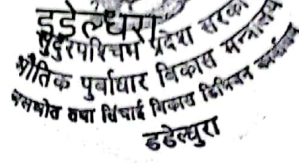 डडेल्धुरा
सुदुरपश्चिम प्रदेश सरकार
भौतिक पुर्वाधार विकास मन्त्रालय
जलस्रोत तथा सिंचाई विकास डिभिजन कार्यालय
डडेल्धुरा